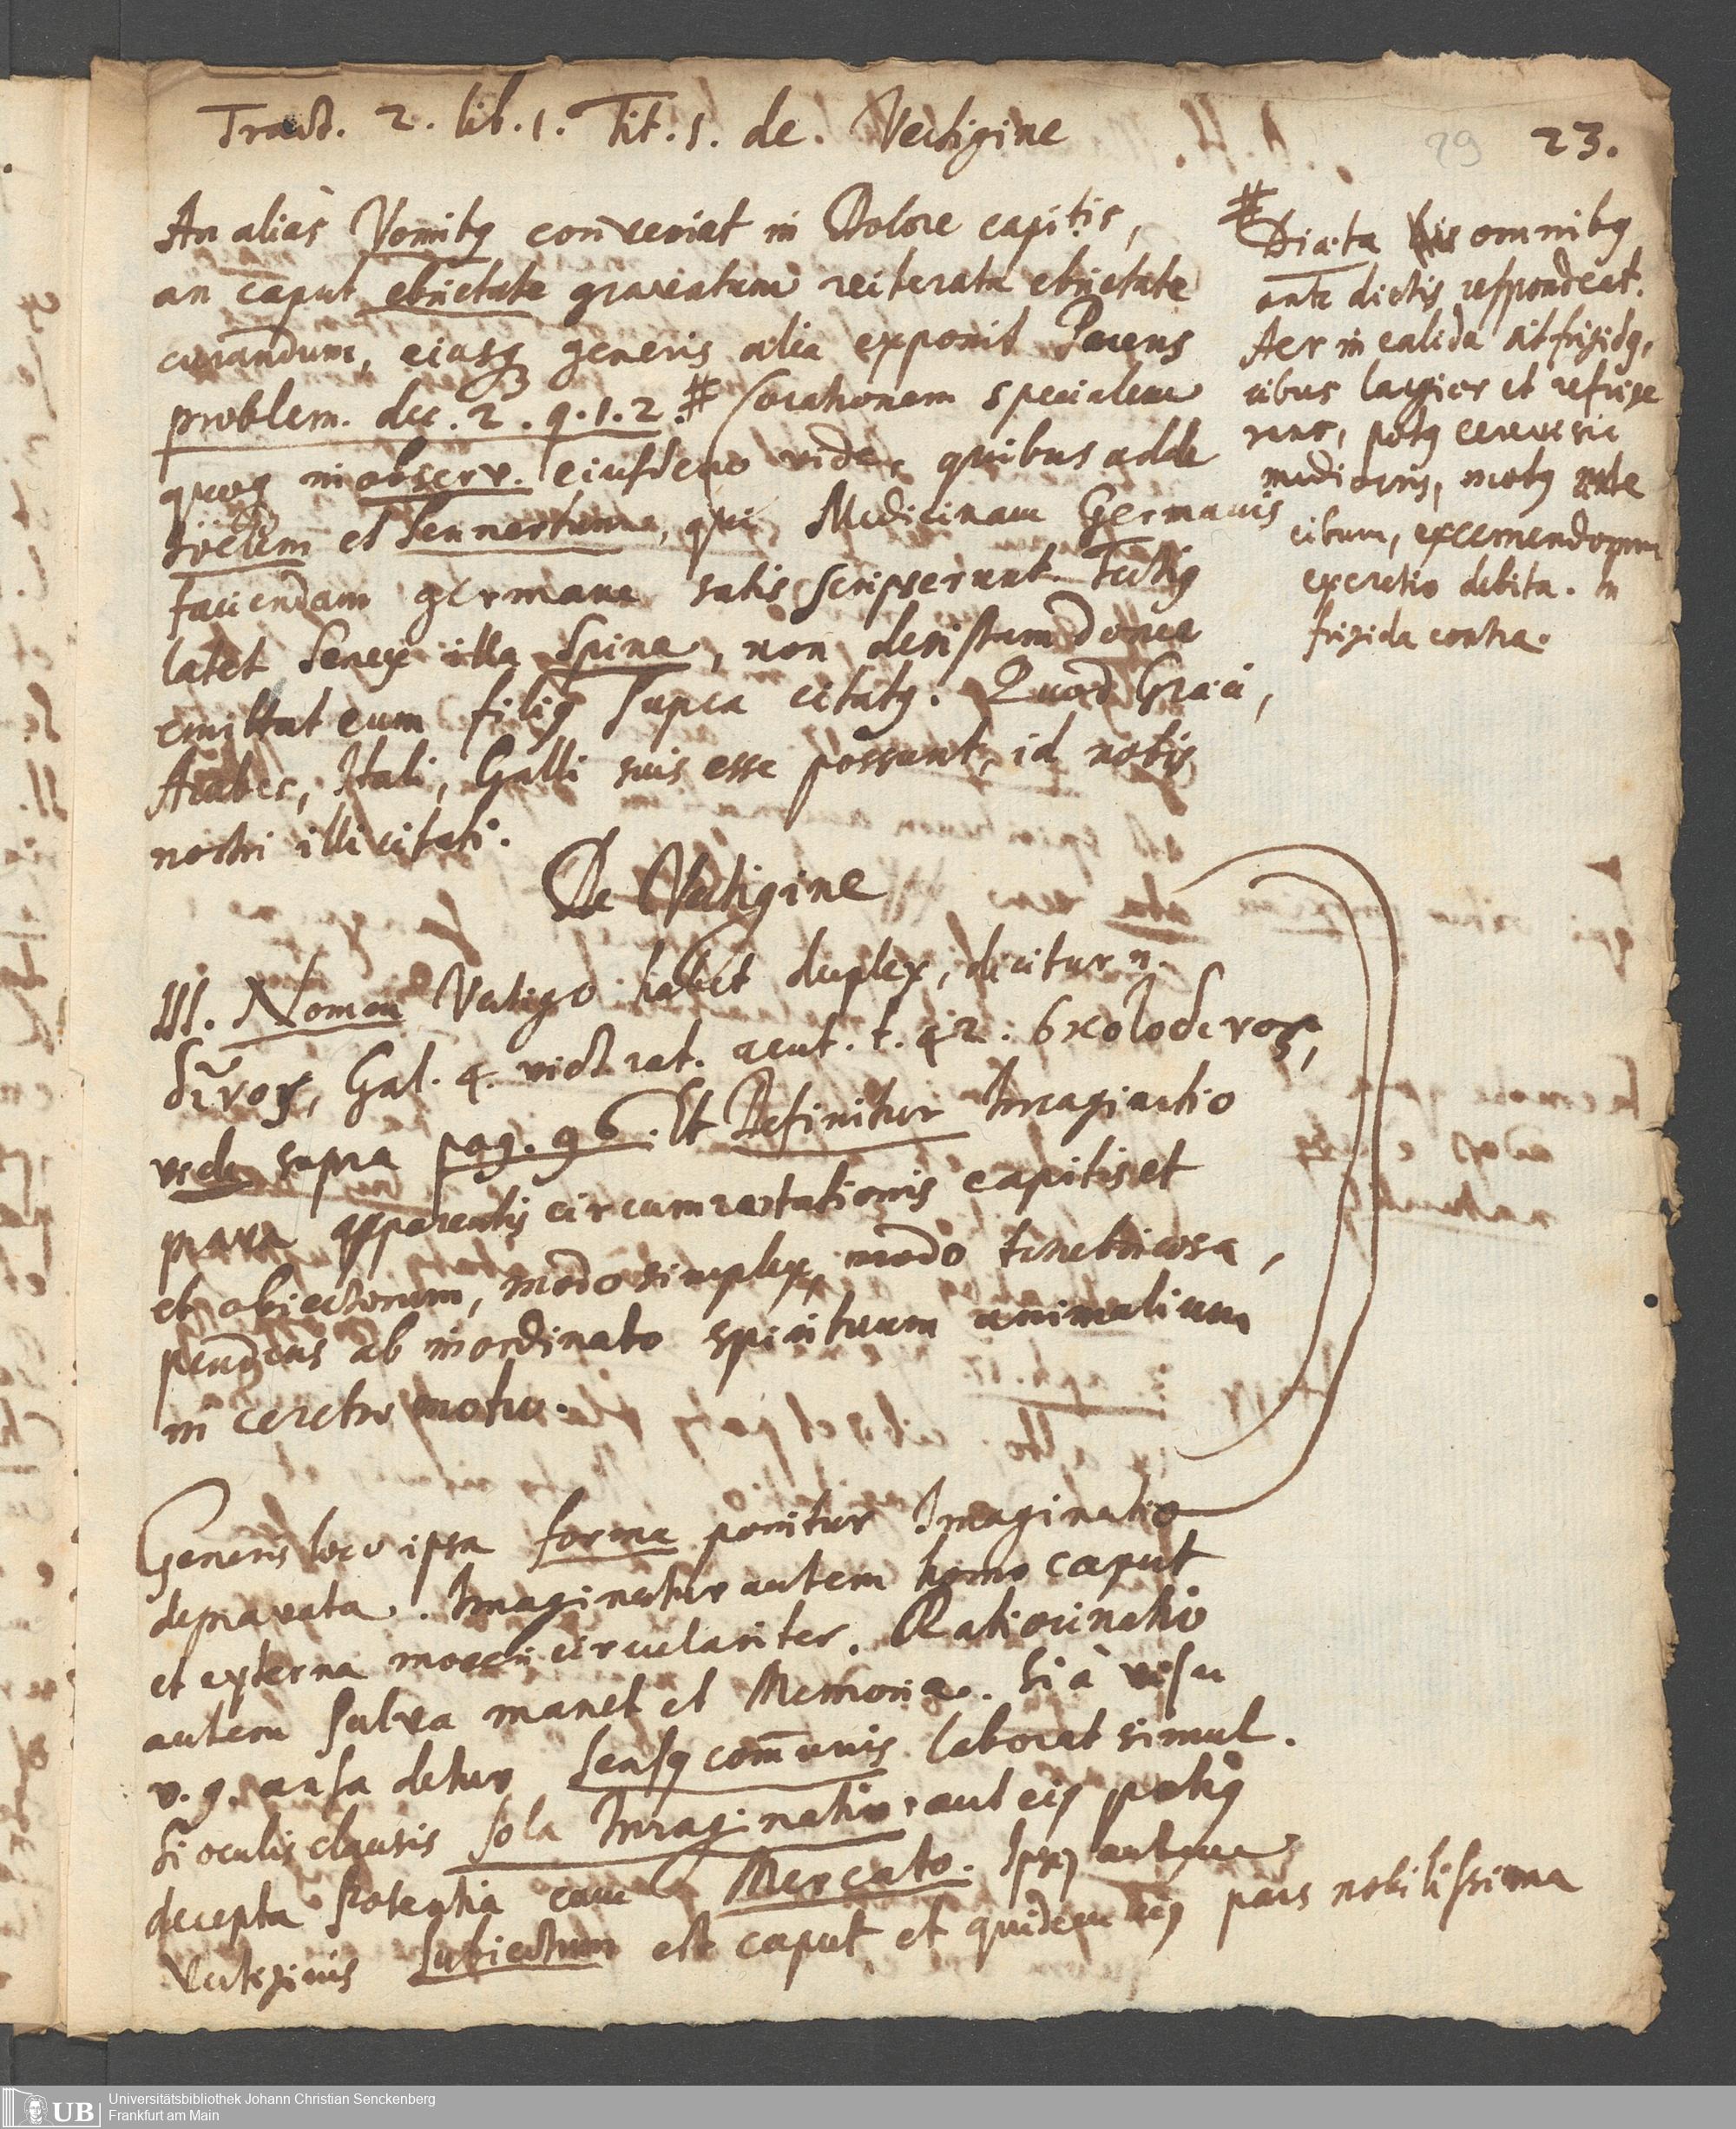 Tract. 2. lib. 1. Tit. 1. de. Vertigine
29 23.
An alias Vomitus conveniat in Dolore capitis,
an caput ebrietate gravatum reiterata ebrietate
curandum, eiusq generis alia exponit Parens
problem. dec. 2. q. 1. 2. # Curationem specialem
quoq in observ. eiusdem vide, quibus adde
et Sennertum, qui Medicinam Germanis
faciendam germane satis scripserunt. Tectus
latet Senex illa Spina, non desistam donec
emittat eum filius supra citatus. Quod Graeci,
Arabes, Itali, Galli suis esse possunt, id nobis
nostri illi citati.
# Diaeta his omnibus
ante dictis respondeat.
Aer in calida sit frigidus,
cibus largior et refrige
rans, potus cerevisia
mediocris, motus ante
cibum, excernendorum
excretio debita. In
frigida contra.
De Vertigine
III. Nomen Vertigo habet duplex, dicitur n.
δῖνος, Gal. 4. vict. rat. acut. t. 42. σκοτόδινος,
vide supra pag. 96. Et Definitur Imaginatio
prava apparentis circumrotationis capitis et
et obiectorum, modo simplex, modo tenebricosa,
pendens ab inordinato spirituum animalium
in cerebro motu.
Generis loco ipsa forma ponitur Imaginatio
depravata. Imaginatur autem homo caput
et externa moveri circulariter. Ratiocinatio
autem salva manet et Memoria. Si à visu
v. g. ansa detur Sensus com̄unis laborat simul.
Si oculis clausis sola Imaginatio, aut eius potius
decepta Potentia cum Mercato. Ipsum autem
Vertiginis Subiectum est caput et quidem eius pars nobilissima
Universitätsbibliothek Johann Christian Senckenberg
UB Frankfurt am Main